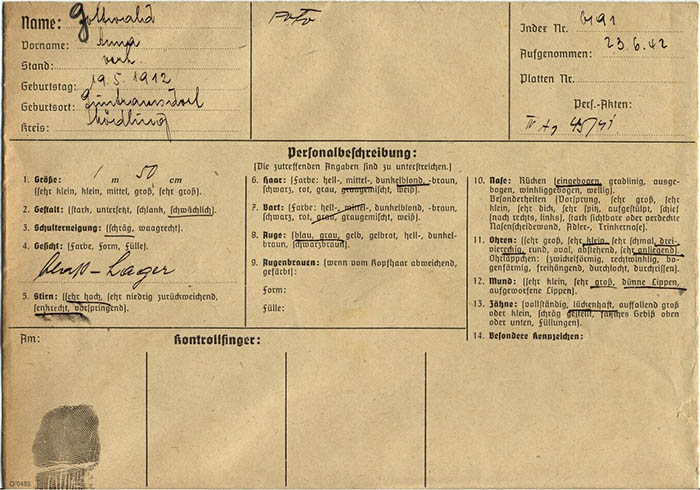 Name: Gottwald
Vorname: Anna
Stand: verh.
Geburtstag: 19.5.1912
Geburtsort: Guntramsdorf
Kreis: Mödling
Foto
Index Nr. 6191
Aufgenommen: 23.6.42
Platten Nr.
Pers.-Akten:
45/41
Personalbeschreibung:
(Die zutreffenden Angaben sind zu unterstreichen.)
1. Größe: 1 m 50 cm
(sehr klein, klein, mittel, groß, sehr groß).
2. Gestalt: (stark, untersetzt, schlank, schwächlich).
3. Schulterneigung: (schräg, waagrecht).
4. Gesicht: (Farbe, Form, Fülle).
Lager
5. Stirn: (sehr hoch, sehr niedrig zurückweichend,
senkrecht, vorspringend).
6. Haar: (Farbe: hell-, mittel-, dunkelblond, -braun,
schwarz, rot, grau, graugemischt, weiß).
7. Bart: (Farbe: hell-, mittel-, dunkelblond, -braun,
schwarz, rot, grau, graugemischt, weiß).
8. Auge: (blau, grau, gelb, gelbrot, hell-, dunkel-
braun, schwarzbraun).
9. Augenbrauen: (wenn vom Kopfhaar abweichend,
gefärbt):
Form:
Fülle:
10. Nase: Rücken (eingebogen, gradlinig, ausge-
bogen, winkliggebogen, wellig).
Besonderheiten (Vorsprung, sehr groß, sehr
klein, sehr dick, sehr spitz, aufgestülpt, schief
(nach rechts, links), stark sichtbare oder verdeckte
Nasenscheidewand, Adler-, Trinkernase).
11. Ohren: (sehr groß, sehr klein, sehr schmal, drei-
viereckig, rund, oval, abstehend, sehr anliegend)
Ohrläppchen: (zwickelförmig, rechtwinklig, bo-
genförmig, freihängend, durchlocht, durchrissen).
12. Mund: (sehr klein, sehr groß, dünne Lippen,
aufgeworfene Lippen).
13. Zähne: (vollständig, lückenhaft, auffallend groß
oder klein, schräg gestellt, falsches Gebiß oben
oder unten, Füllungen).
14. Besondere Kennzeichen:
Am:
Kontrollfinger: